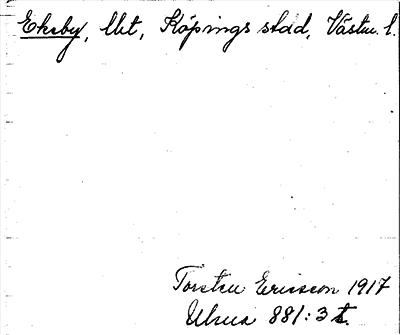 Ekeby, lht, Köpings stad, Västm. l.
Torsten Ericsson 1917
Ulma 881:3 t.